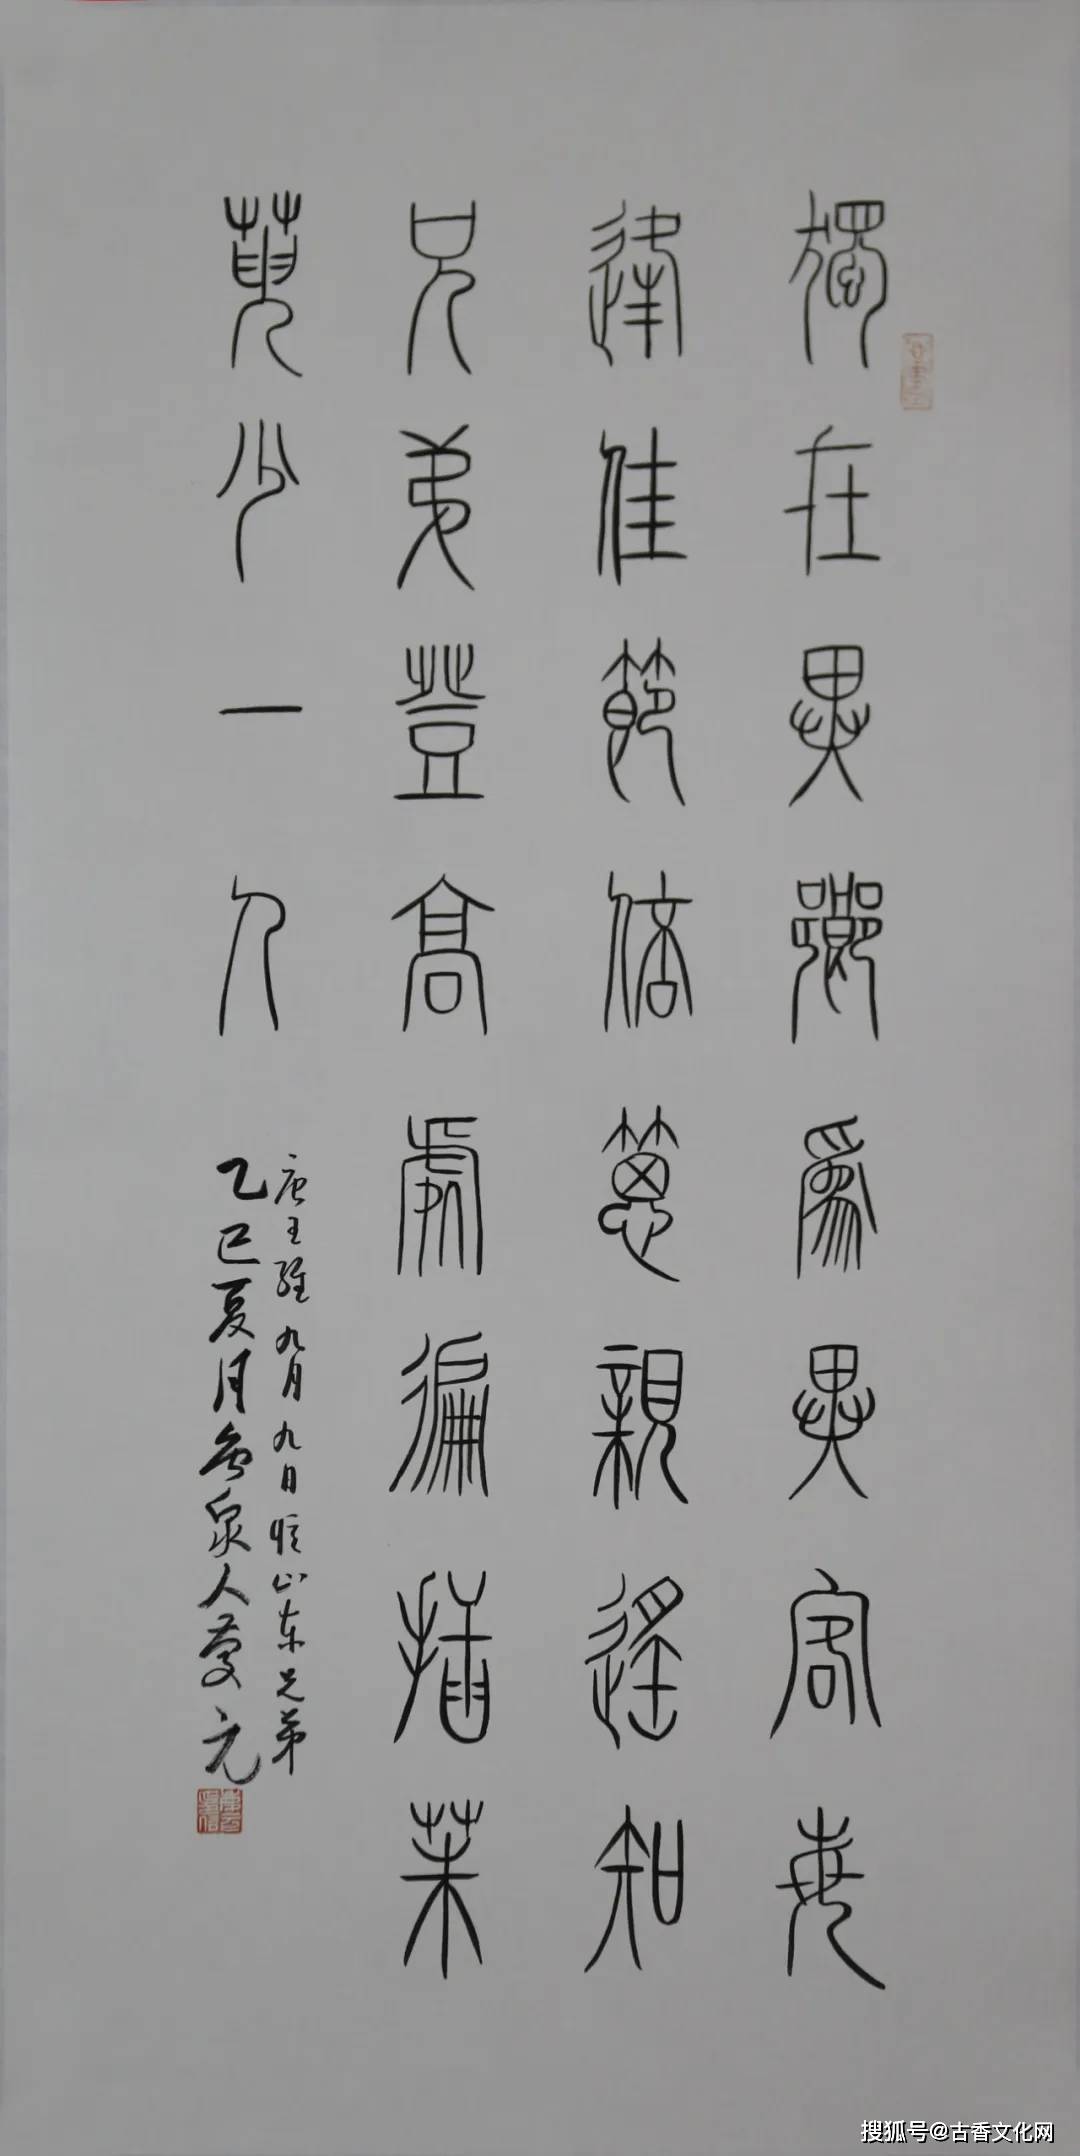 獨在異鄉爲異客每
逢佳節倍思親遙知
兄弟登高處徧插茱
萸少一人
唐王維九月九日憶山东兄弟
乙巳夏月泉人元
搜狐号@古香文化网